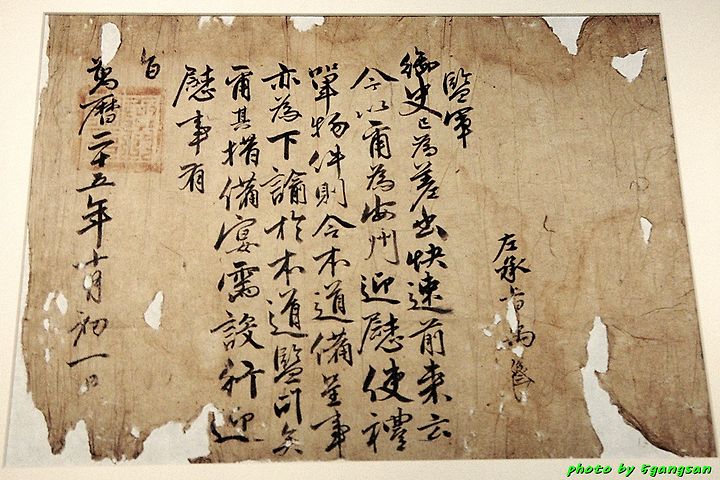 左承旨
監軍
御史已為差出快速前来云
今以爾為海州迎慰使禮
單物件則令本道備呈事
亦為下諭於本道監司矣
爾其措備宴需設行迎
慰事有
旨
萬曆二十五年十月初一日
photo by 5gangsan